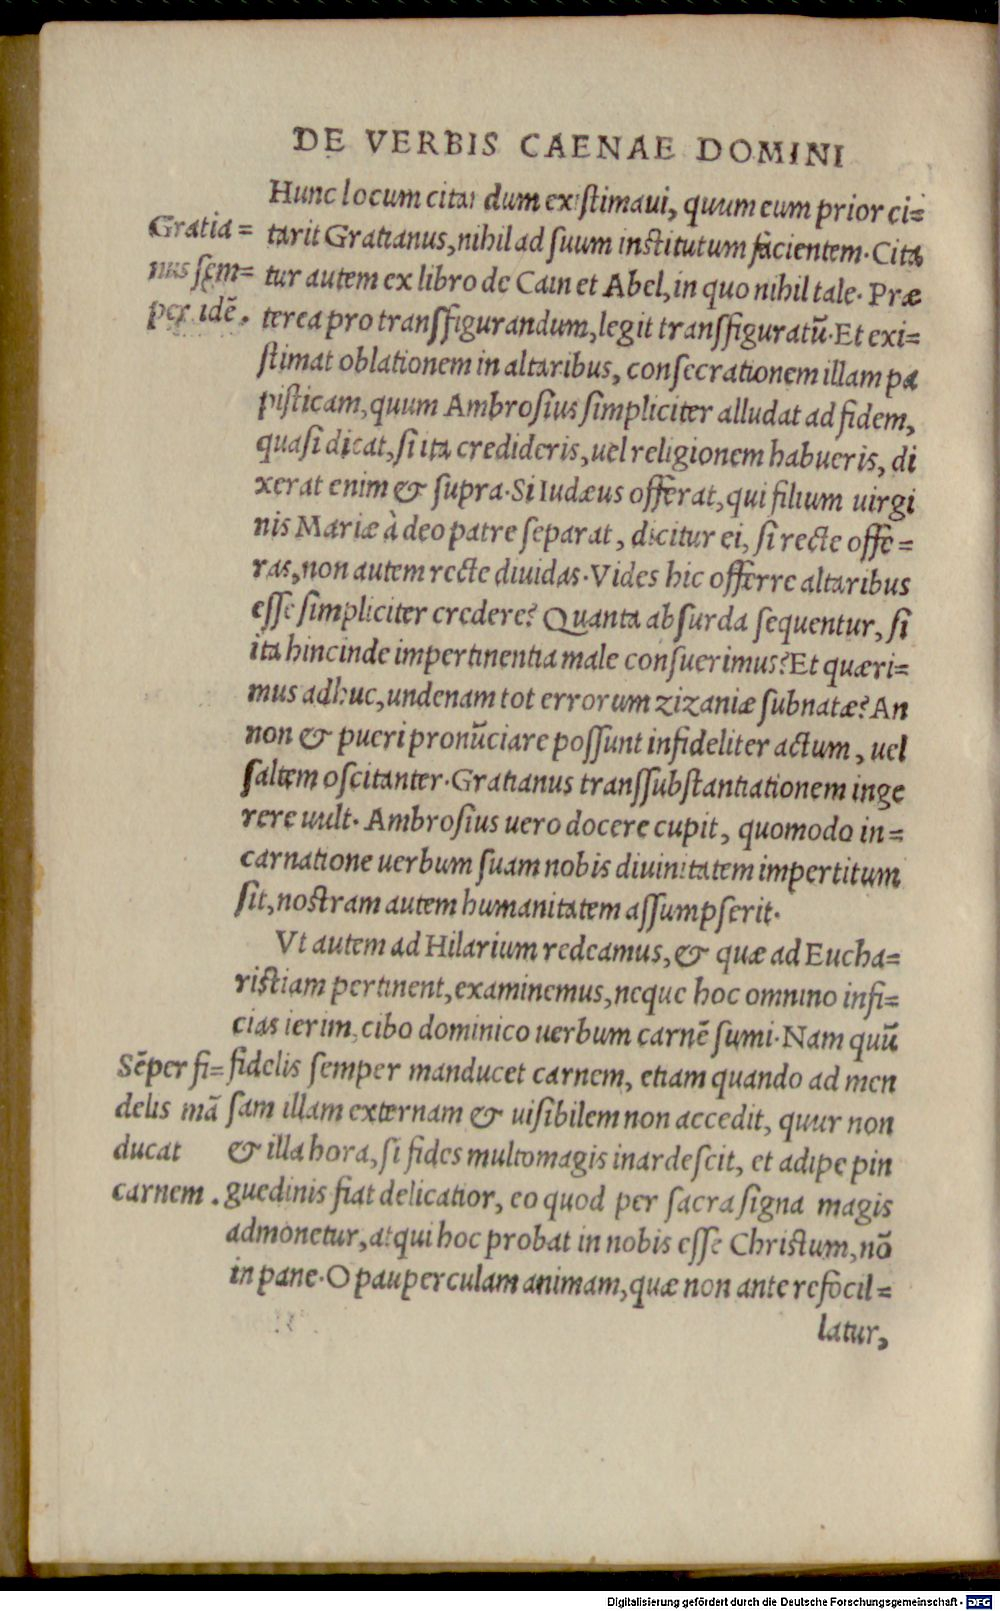 DE VERBIS CAENAE DOMINI
Hunc locum citandum existimaui, quum eum prior ci=
Gratia=
tarit Gratianus, nihil ad suum institutum facientem. Cita
nus sem=
tur autem ex libro de Cain et Abel, in quo nihil tale. Præ
per idē.
terea pro transfigurandum, legit transfiguratū. Et exi=
stimat oblationem in altaribus, consecrationem illam pa
pisticam, quum Ambrosius simpliciter alludat ad fidem,
quasi dicat, si ita credideris, uel religionem habueris, di
xerat enim & supra. Si Iudæus offerat, qui filium uirgi
nis Mariæ à deo patre separat, dicitur ei, si recte offe=
ras, non autem recte diuidas. Vides hic offerre altaribus
esse simpliciter credere? Quanta absurda sequentur, si
ita hincinde impertinentia male consuerimus? Et quæri=
mus adhuc, undenam tot errorum zizaniæ subnatæ? An
non & pueri pronūciare possunt infideliter actum, uel
saltem oscitanter. Gratianus transsubstantiationem inge
rere uult. Ambrosius uero docere cupit, quomodo in=
carnatione uerbum suam nobis diuinitatem impertitum
sit, nostram autem humanitatem assumpserit.
Vt autem ad Hilarium redeamus, & quæ ad Eucha=
ristiam pertinent, examinemus, neque hoc omnino infi=
cias ierim, cibo dominico uerbum carnē sumi. Nam quū
Sēper fi=
fidelis semper manducet carnem, etiam quando ad men
delis mā
sam illam externam & uisibilem non accedit, quur non
ducat
& illa hora, si fides multo magis inardescit, et adipe pin
carnem.
guedinis fiat delicatior, eo quod per sacra signa magis
admonetur, atqui hoc probat in nobis esse Christum, nō
in pane. O pauperculam animam, quæ non ante refocil=
latur,
Digitalisierung gefördert durch die Deutsche Forschungsgemeinschaft - DFG